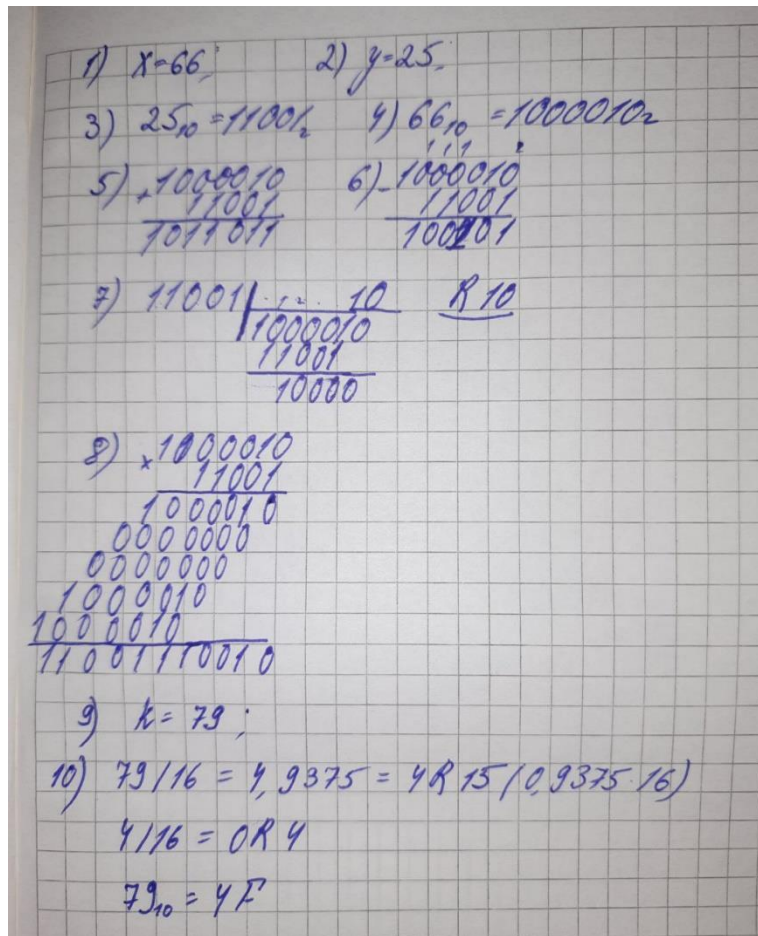 1) x=66; 2) y=25;
3) 25₁₀ = 11001₂ 4) 66₁₀ = 1000010₂
5) + 1000010 6) - 1000010
11001 11001
1011011 100101
7) 11001 10 R 10
1000010
11001
10000
8) x 1000010
11001
1000010
0000000
0000000
1000010
1000010
11001110010
9) k = 79;
10) 79/16 = 4,9375 = 4R15 (0,9375·16)
4/16 = 0R4
79₁₀ = 4F